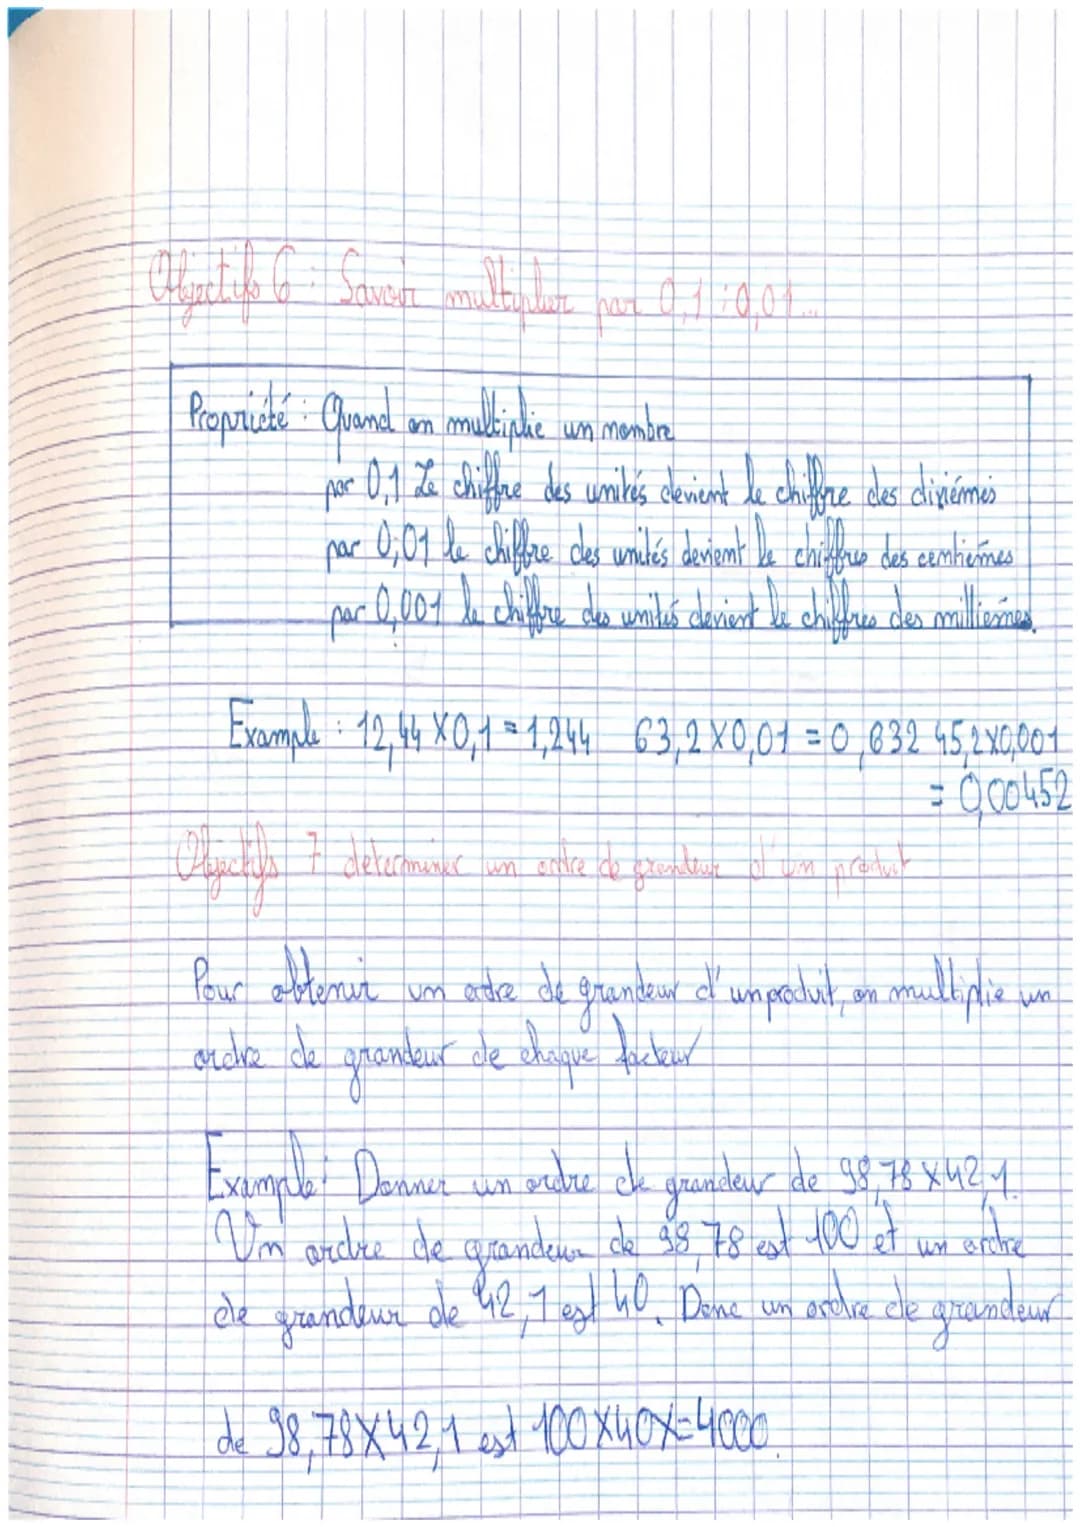 Objectifs 6 : Savoir multiplier par 0,1 ; 0,01...
Propriété : Quand on multiplie un nombre
par 0,1 Le chiffre des unités devient le chiffre des dixiémes
par 0,01 le chiffre des unités devient le chiffres des centiemes
par 0,001 le chiffre des unités devient le chiffres des milliemes.
Example : 12,44 X 0,1 = 1,244 63,2 X 0,01 = 0,632 45,2X0,001
= 0,00452
Objectifs 7 determiner un ordre de grandeur d'un produit
Pour obtenir un ordre de grandeur d'un produit, on multiplie un
ordre de grandeur de chaque facteur
Example : Donner un ordre de grandeur de 98,78 X 42,1.
Un ordre de grandeur de 98,78 est 100 et un ordre
de grandeur de 42,1 est 40. Donc un ordre de grandeur
de 98,78X42,1 est 100X40X=4000.